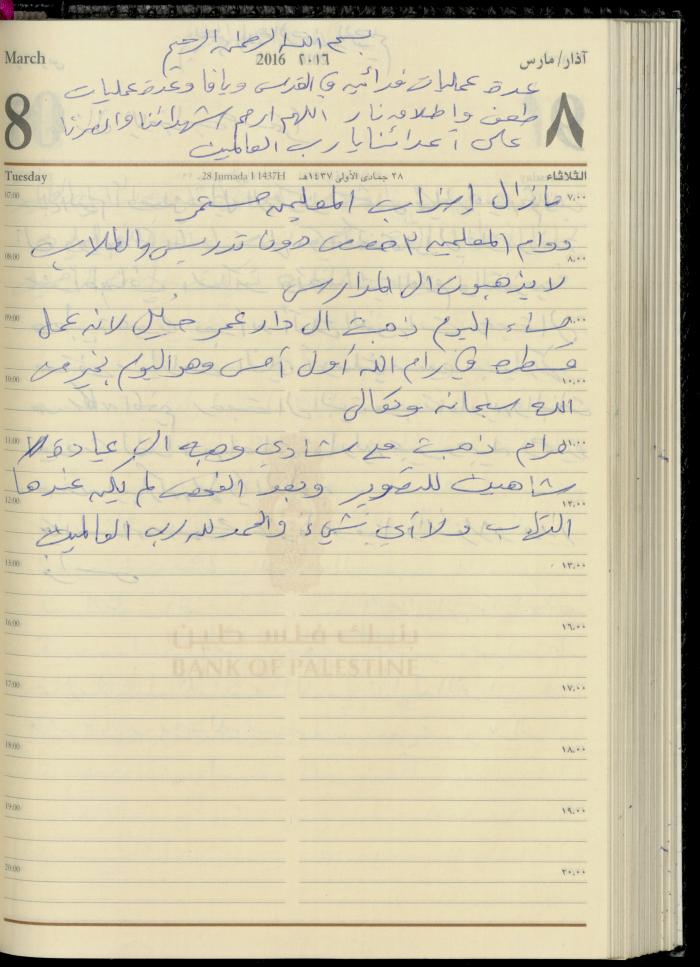 بسم الله الرحمن الرحيم
March 2016 ٢٠١٦ آذار/مارس
عدة عمليات فدائيه في القدس ويافا وعدة عمليات
8 طعن واطلاق نار اللهم ارحم شهدائنا وانصرنا ٨
على أعدائنا يا رب العالمين
Tuesday 28 Jumada I 1437H ٢٨ جمادى الأولى ١٤٣٧هـ الثلاثاء
07:00 ما زال إضراب المعلمين مستمر ٧,٠٠
دوام المعلمين ٢ حصص دون تدريس والطلاب
08:00 ٨,٠٠
لا يذهبون الى المدارس
09:00 مساء اليوم ذهبت الى دار عمر خليل لانه عمل ٩,٠٠
قسطره في رام الله أول أمس وهو اليوم بخير من
10:00 ١٠,٠٠
الله سبحانه وتعالى
11:00 مرام ذهبت مع شادي وهبه الى عيادة ١١,٠٠
شاهين للتصوير وبعد الفحص لم يكن عندها
12:00 ١٢,٠٠
التهاب ولا أي شيء والحمد لله رب العالمين
13:00 ١٣,٠٠
16:00 ١٦,٠٠
بنك فلسطين
BANK OF PALESTINE
17:00 ١٧,٠٠
18:00 ١٨,٠٠
19:00 ١٩,٠٠
20:00 ٢٠,٠٠